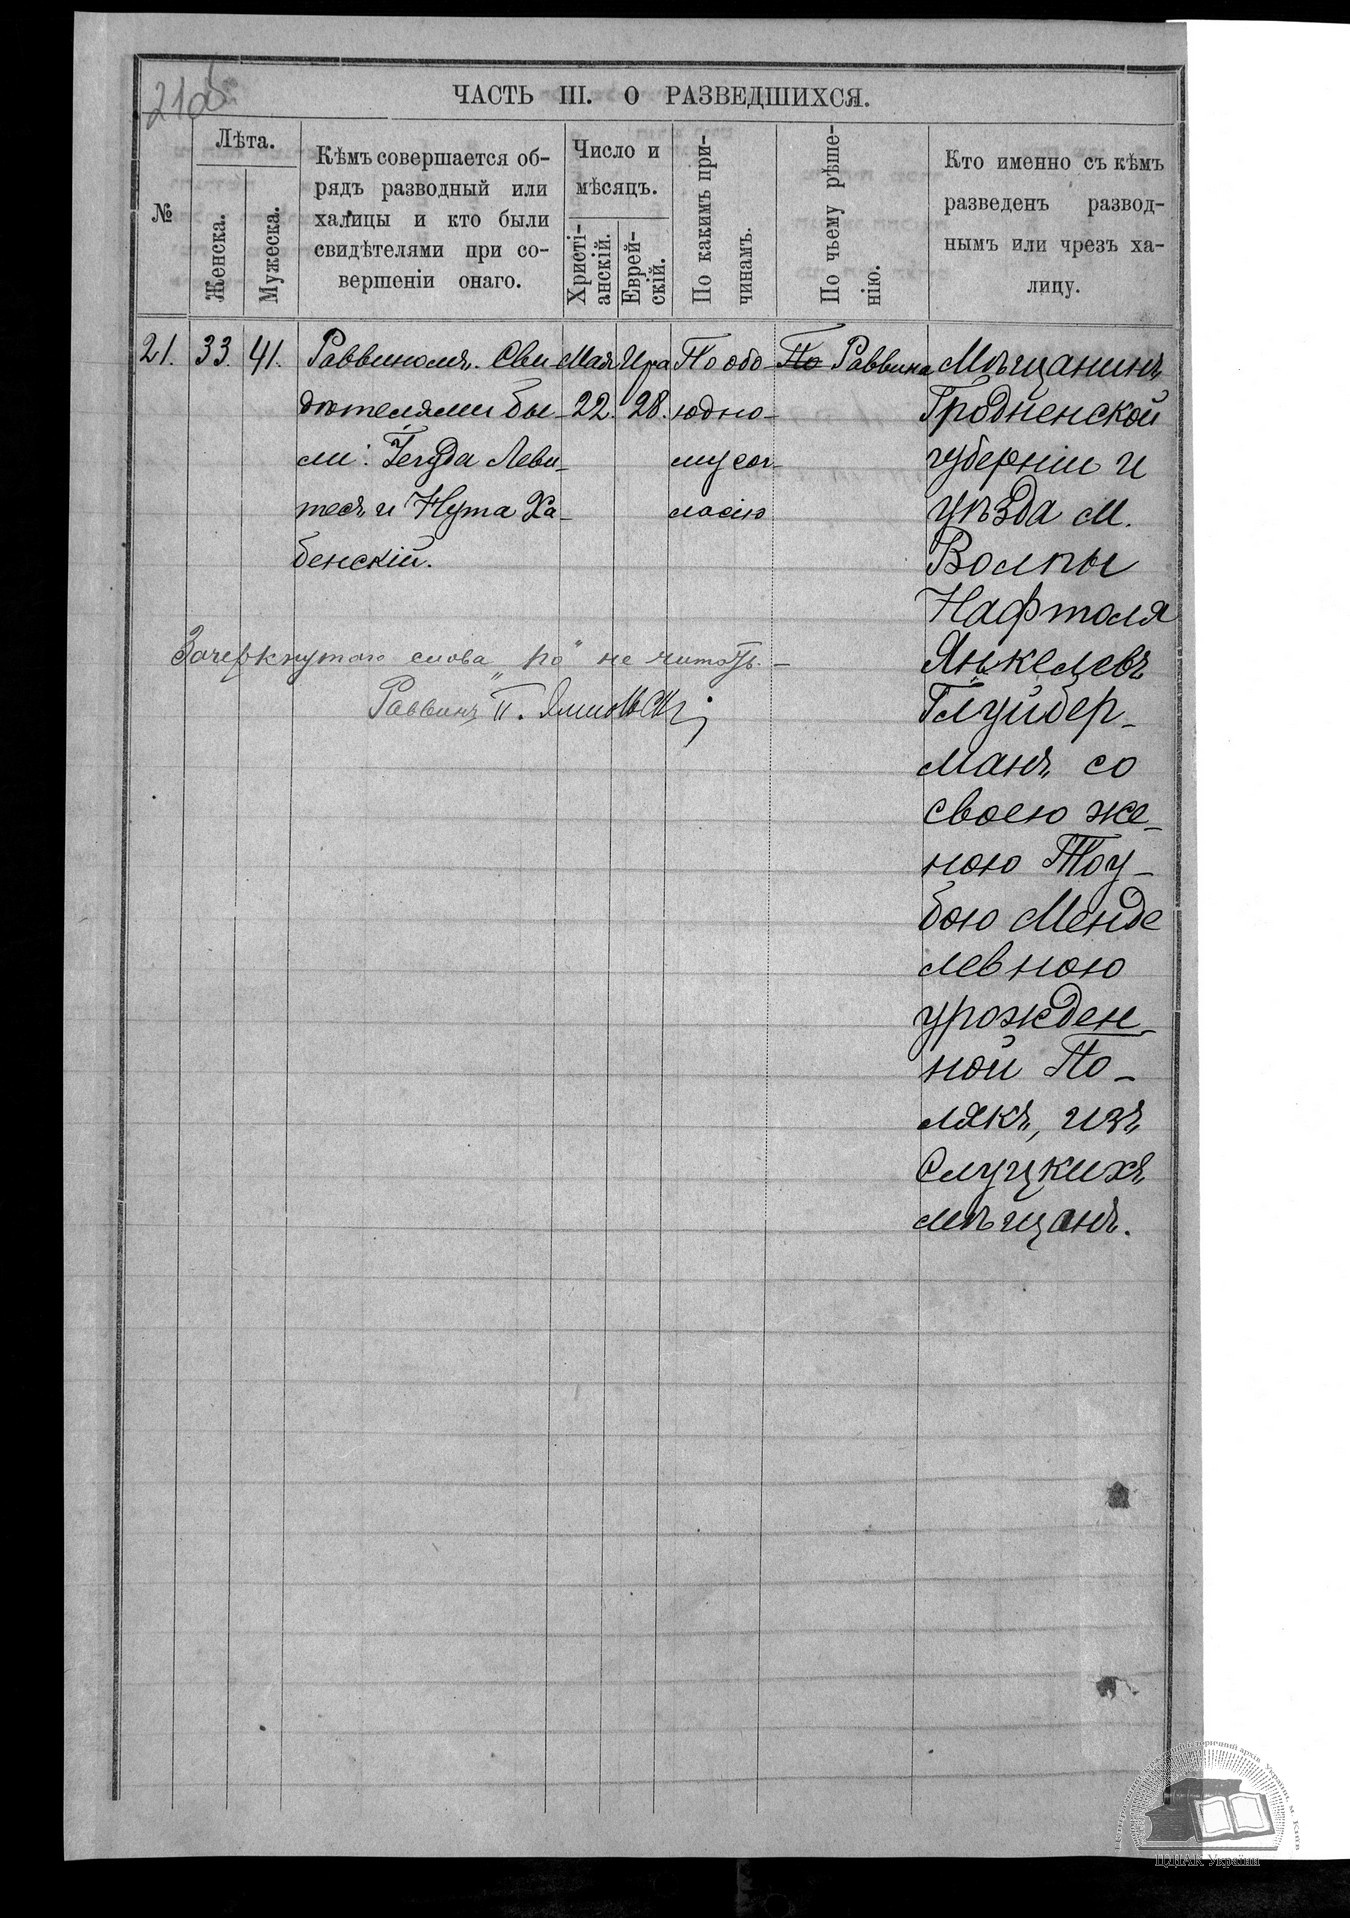 21об
ЧАСТЬ III. О РАЗВЕДШИХСЯ.
№
Лѣта.
Женска.
Мужеска.
Кѣмъ совершается об-
рядъ разводный или
халицы и кто были
свидѣтелями при со-
вершеніи онаго.
Число и
мѣсяцъ.
Христі-
анскій.
Еврей-
скій.
По какимъ при-
чинамъ.
По чьему рѣше-
нію.
Кто именно съ кѣмъ
разведенъ развод-
нымъ или чрезъ ха-
лицу.
21.
33.
41.
Раввиномъ. Сви-
дѣтелями бы-
ли: Іегуда Леви-
тесъ и Нута Ха-
бенскій.
Мая
22.
Ира
28.
По обо-
юдно-
му сог-
ласію
По Раввина
Мѣщанинъ
Гродненской
губерніи и
уѣзда м.
Волпы
Нафтоля
Янкелевъ
Глуйбер-
манъ со
своею же-
ною Тоу-
бою Менде
левною
урожден-
ной По-
лякъ, изъ
Слуцкихъ
мѣщанъ.
Зачеркнутаго слова „по“ не читать. –
Раввинъ П. Ямпольскій
Центральний державний історичний архів України, м. Київ
ЦДІАК України